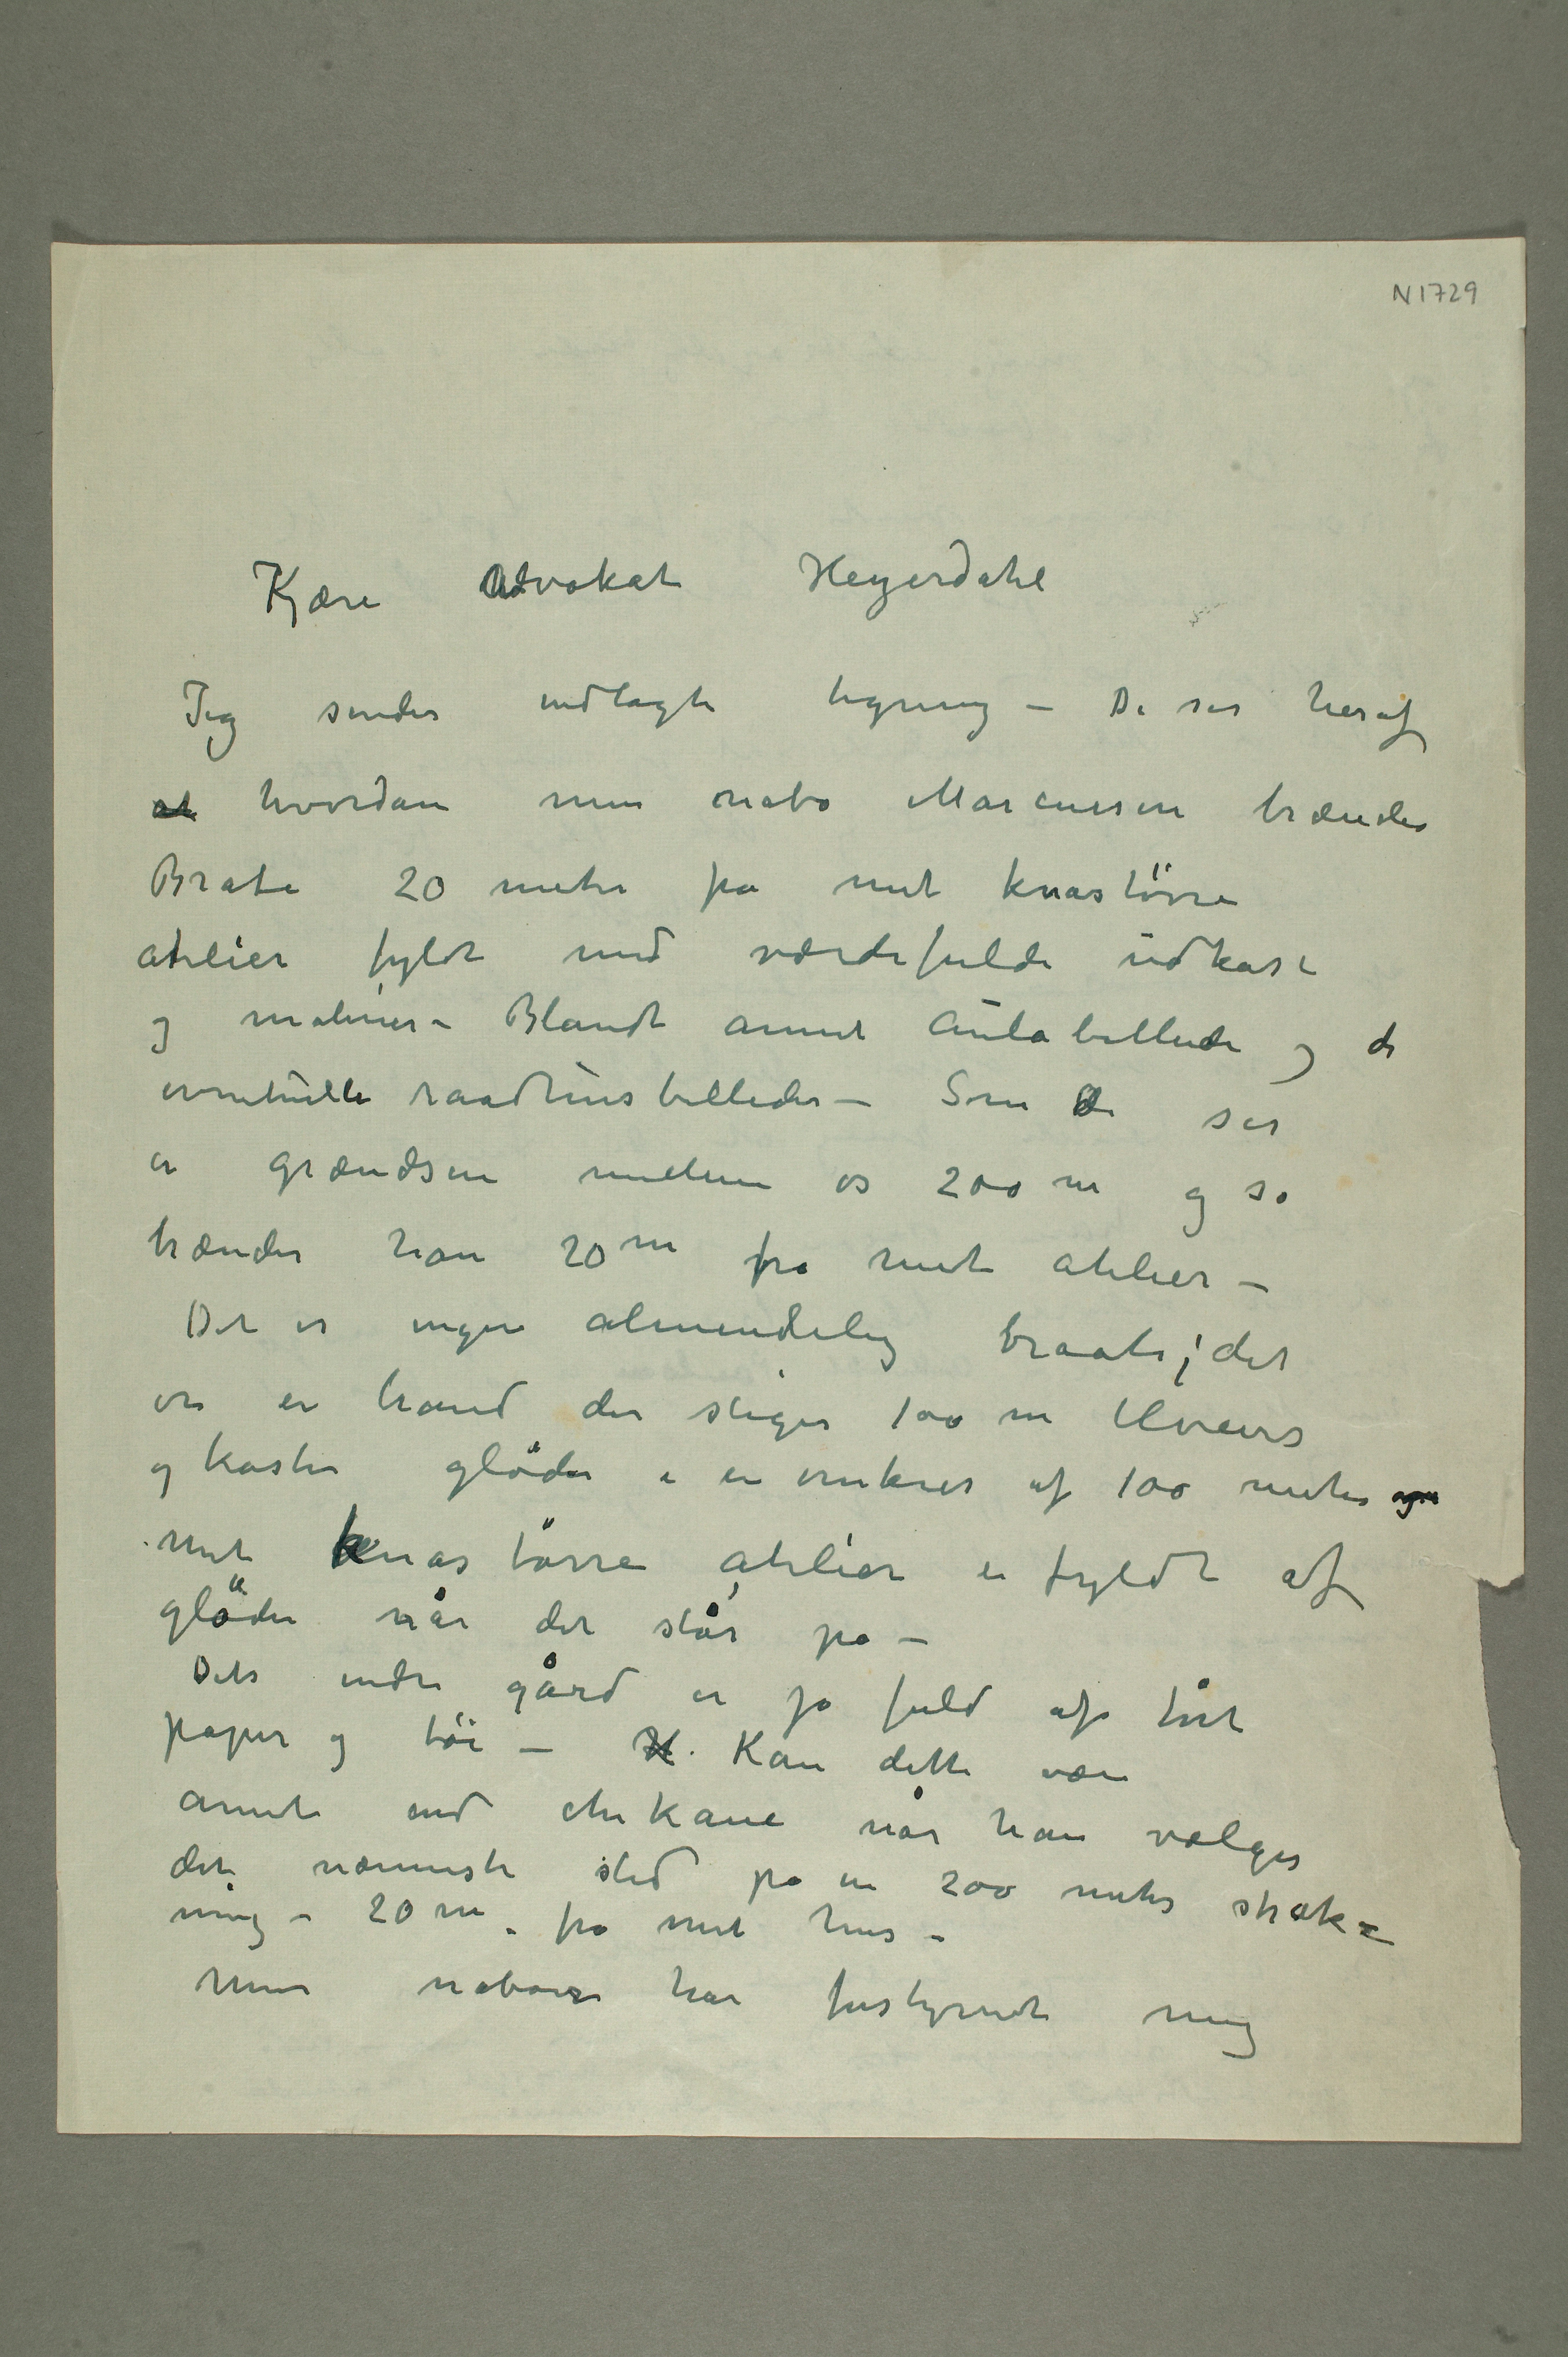 N 1729
Kjære Advokat Heyerdahl
Jeg sender indlagte tegning – De ser heraf
at hvordan min nabo Marcussen brænder
Brate 20 meter fra mit knastörre
atelier fyldt med værdifulde udkast
og malerier – Blandt annet Aulabillede og de
eventuelle raadhusbilleder – Som De ser
er grændsen mellem os 200 m og så
brænder han 20 m fra mit atelier –
Det er ingen almindelig braate; det
er en brand der stiger 100 m tilveirs
og kaster glöder i en omkres af 100 meter og
Mit knastörre atelier er fyldt af
glöder når det står på –
Dets indre gård er jo fuld af tört
papir og töi – H. Kan dette være
annet end chikane når han vælger
det nærmeste sted på en 200 meter stræk-
ning – 20 m. fra mit hus –
Min naboer har forsynet mig